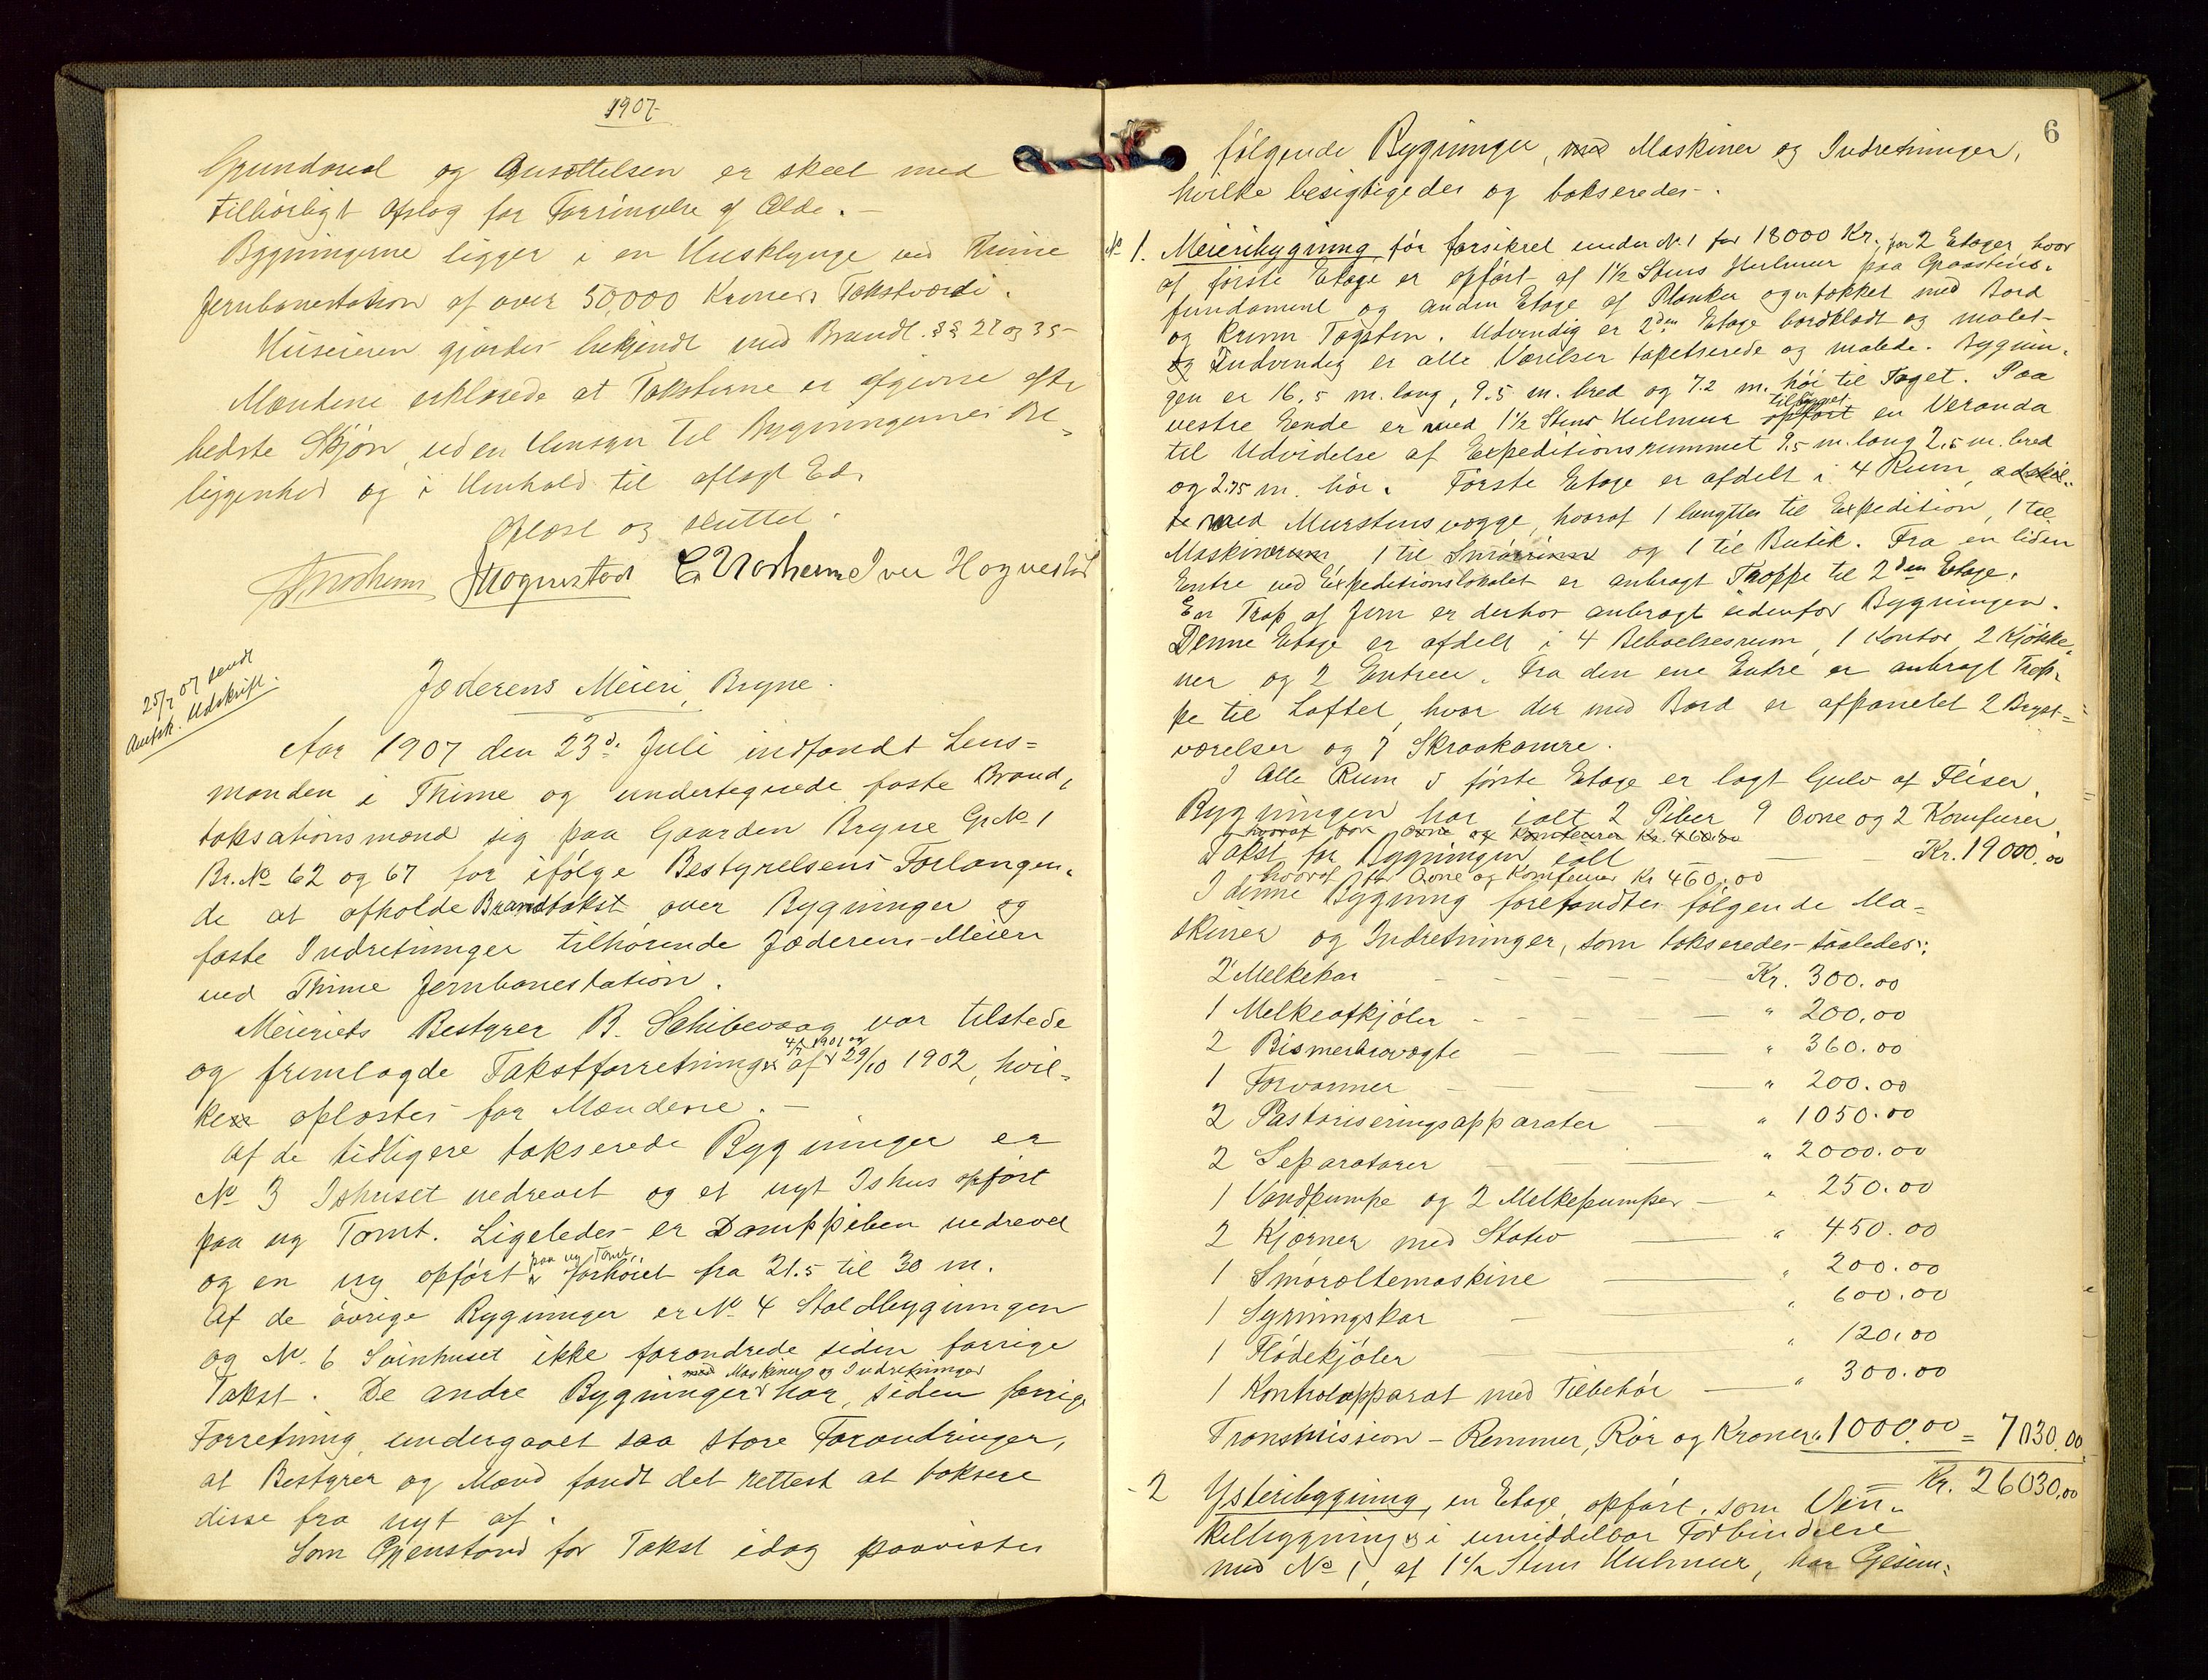 1907
Grundareal og Ansættelsen er skeet med
tilbørligt Afslag for Forringelse af Ælde.
Bygningerne ligger i en Husklynge ved Thime
Jernbanestation af over 50,000 Kroners Takstværdi.
Huseieren gjordes bekjendt med Brandl. §§ 27 og 35
Mændene erklærede at Taksterne er afgivne efter
bedste Skjøn, uden Hensyn til Bygningernes Be-
liggenhed og i Henhold til aflagt Ed.
Oplæst og sluttet.
Iver Hognestad
25/7 07 sendt
Amtsk. Udskrift.
Jæderens Meieri, Bryne.
Aar 1907 den 23d. Juli indfandt Lens=
manden i Thime og undertegnede faste Brand,
taksationsmænd sig paa Gaarden Bryne Gr No 1
Br. No 62 og 67 for ifølge Bestyrelsens Forlangen-
de at afholde Brandtakst over Bygninger og
faste Indretninger tilhørende Jæderens Meieri
ved Thime Jernbanestation.
Meieriets Bestyrer R. Schibevaag var tilstede
4/7 1901 og
og fremlagde Takstforretninger af 29/10 1902, hvil-
ke oplæstes for Mændene.
Af de tidligere takserede Bygninger er
No 3 Ishuset nedrevet og et nyt Ishus opført
paa ny Tomt. Ligeledes er Damppiben nedrevet
paa ny Tomt,
og en ny opført forhøiet fra 21.5 til 30 m.
Af de øvrige Bygninger er No 4 Staldbygningen
og No 6 Svinhuset ikke forandrede siden forrige
med Maskiner og Indretninger
Takst. De andre Bygninger har, siden forrige
Forretning, undergaaet saa store Forandringer,
at Bestyrer og Mænd fandt det rettest at taksere
disse fra nyt af.
Som Gjenstand for Takst idag paavistes
6
følgende Bygninger, med Maskiner og Indretninger,
hvilke besigtigedes og takseredes.
No 1. Meieribygning før forsikret under No 1 for 18000 Kr. har 2 Etager hvor
af første Etage er opført af 1½ Stens Hulmur paa Graastens-
fundament og anden Etage af Planker og er tækket med Bord
og Krum Tagsten. Udvendig er 2den Etage bordklædt og malet
og Indvendig er alle Værelser tapetserede og malede. Bygnin-
gen er 16,5 m. lang, 9.5 m. bred og 7.2 m. høi til Taget. Paa
tilbygget
vestre Ende er med 1½ Stens Hulmur opført en Veranda
til Udvidelse af Expeditionsrummet 9,5 m. lang 2,5 m. bred
og 2.75 m. høi. Første Etage er afdelt i 4 Rum, adskil-
te med Murstensvægge, hvoraf 1 benyttes til Expedition, 1 til
Maskinrum 1 til Smørrum og 1 til Butik. Fra en liden
Entre ved Expeditionslokalet er anbragt Trappe til 2den Etage.
En Trap af Jern er derhos anbragt udenfor Bygningen.
Denne Etage er afdelt i 4 Beboelsesrum, 1 Kontor 2 Kjøkke-
ner og 2 Entreer. Fra den ene Entre er anbragt Trap-
pe til Loftet, hvor der med Bord er afpanelet 2 Bryst=
værelser og 7 Skraakamre.
I Alle Rum i første Etage er lagt Gulv af Fliser.
Bygningen har ialt 2 Piber 9 Ovne og 2 Komfurer
hvoraf for Ovne og Komfeurer Kr. 460.00
Takst for Bygningen ialt Kr. 19000,00
hvoraf for Ovne og Komfeurer Kr 460,00
I denne Bygning forefandtes følgende Ma-
skiner og Indretninger, som takseredes saaledes:
2 Melkekar Kr. 300.00
1 Melkeafkjøler " 200.00
2 Bismerbrovægte " 360.00
1 Forvarmer " 200.00
2 Pastøriseringsapparater " 1050.00
2 Separatorer " 2000.00
1 Vandpumpe og 2 Melkepumper " 250.00
2 Kjærner med Stativ " 450.00
1 Smøræltemaskine " 200.00
1 Syrningskar " 600.00
1 Flødekjøler " 120.00
1 Kontrolapparat med Tilbehør " 300.00
Transmission - Remmer, Rør og Kraner " 1000.00 = 7030.00
Kr. 26030,00
2 Ysteribygning, en Etage, opført som Vin-
kelbygning i umiddelbar Forbindelse
med No 1, af 1½ Stens Hulmur, har Gjesim-